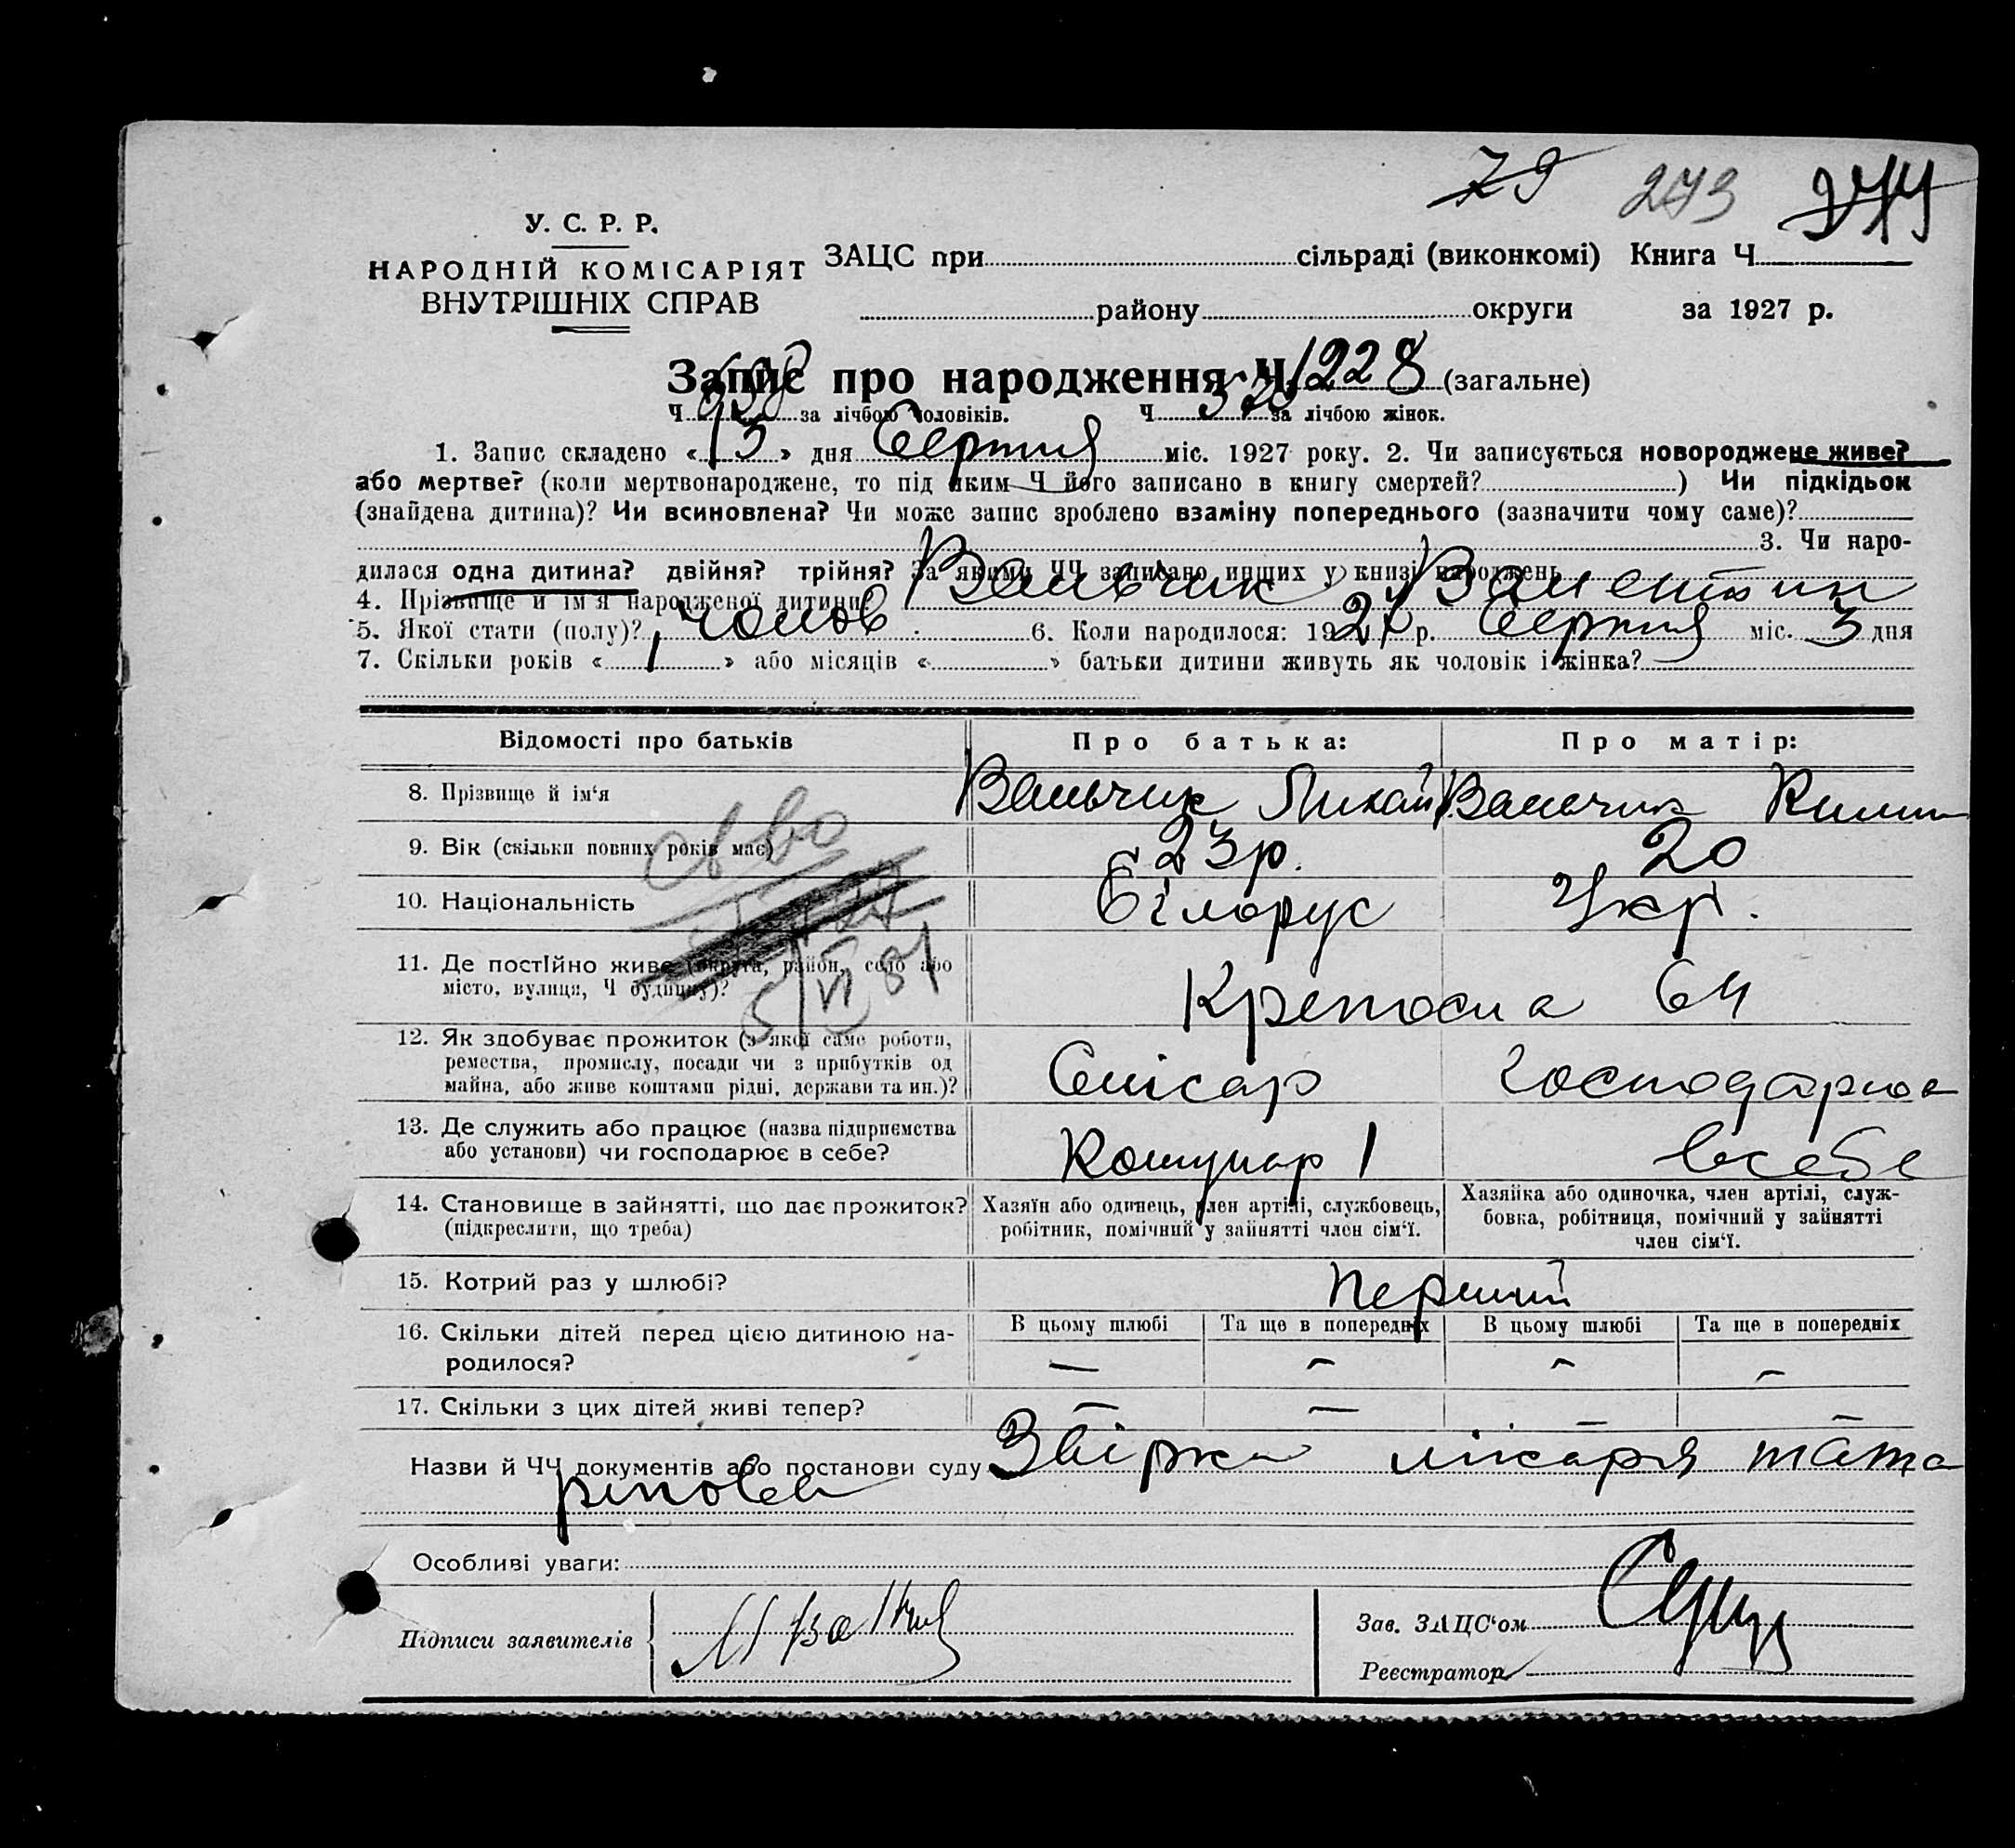 79 273 274
У. С. Р. Р.
НАРОДНІЙ КОМІСАРІЯТ
ВНУТРІШНІХ СПРАВ
ЗАЦС при сільраді (виконкомі) Книга Ч
району округи за 1927 р.
Запис про народження Ч 1228 (загальне)
Ч 658 за лічбою чоловіків. Ч 570 за лічбою жінок.
1. Запис складено « 13 » дня Серпня міс. 1927 року. 2. Чи записується новороджене живе?
або мертве? (коли мертвонароджене, то під яким Ч його записано в книгу смертей? ) Чи підкідьок
(знайдена дитина)? Чи всиновлена? Чи може запис зроблено взаміну попереднього (зазначити чому саме)?
3. Чи наро-
дилася одна дитина? двійня? трійня? За якими ЧЧ записано инших у книзі народжень
4. Прізвище й ім'я народженої дитини? Вальчик Валентин
5. Якої стати (полу)? чолов. 6. Коли народилося: 1927 р. Серпня міс. 3 дня
7. Скільки років « 1 » або місяців « » батьки дитини живуть як чоловік і жінка?
Відомості про батьків Про батька: Про матір:
8. Прізвище й ім'я Вальчик Михайл Вальчик
9. Вік (скільки повних років має) 23 р. 20
10. Національність Білорус Укр.
11. Де постійно живе (округа, район, село або
місто, вулиця, Ч будинку)? Крепосна 64
5/VI 81
12. Як здобуває прожиток (з якої саме роботи,
ремества, промислу, посади чи з прибутків од
майна, або живе коштами рідні, держави та ин.)? Слісар господарює
13. Де служить або працює (назва підприємства
або установи) чи господарює в себе? Комунар 1 в себе
14. Становище в зайнятті, що дає прожиток?
(підкреслити, що треба)
Хазяїн або одинець, член артілі, службовець,
робітник, помічний у зайнятті член сім'ї.
Хазяйка або одиночка, член артілі, служ-
бовка, робітниця, помічний у зайнятті
член сім'ї.
15. Котрий раз у шлюбі? Перший
16. Скільки дітей перед цією дитиною на-
родилося?
В цьому шлюбі Та ще в попередніх В цьому шлюбі Та ще в попередніх
— — — —
17. Скільки з цих дітей живі тепер? — — — —
Назви й ЧЧ документів або постанови суду Звірка лікаря
Особливі уваги:
Підписи заявителів
Зав. ЗАЦС'ом
Реєстратор